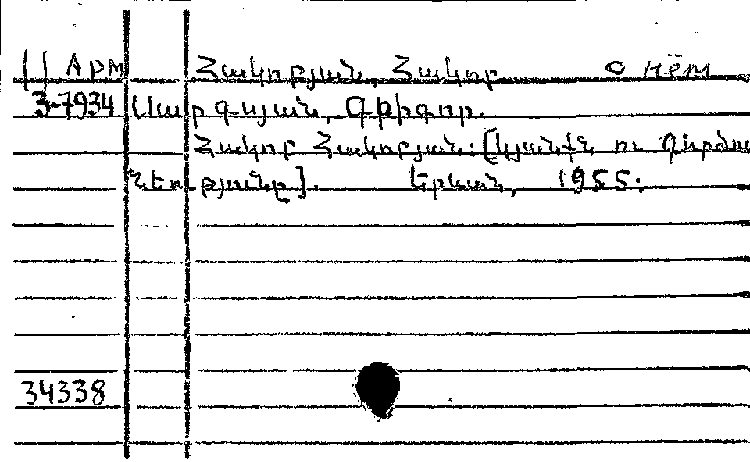 11 Арм Հակոբյան, Հակոբ о нём
3-7934 Սարգսյան, Գրիգոր.
Հակոբ Հակոբյան: [Կյանքն ու գործու
նեությունը]. Երևան, 1955:
34338